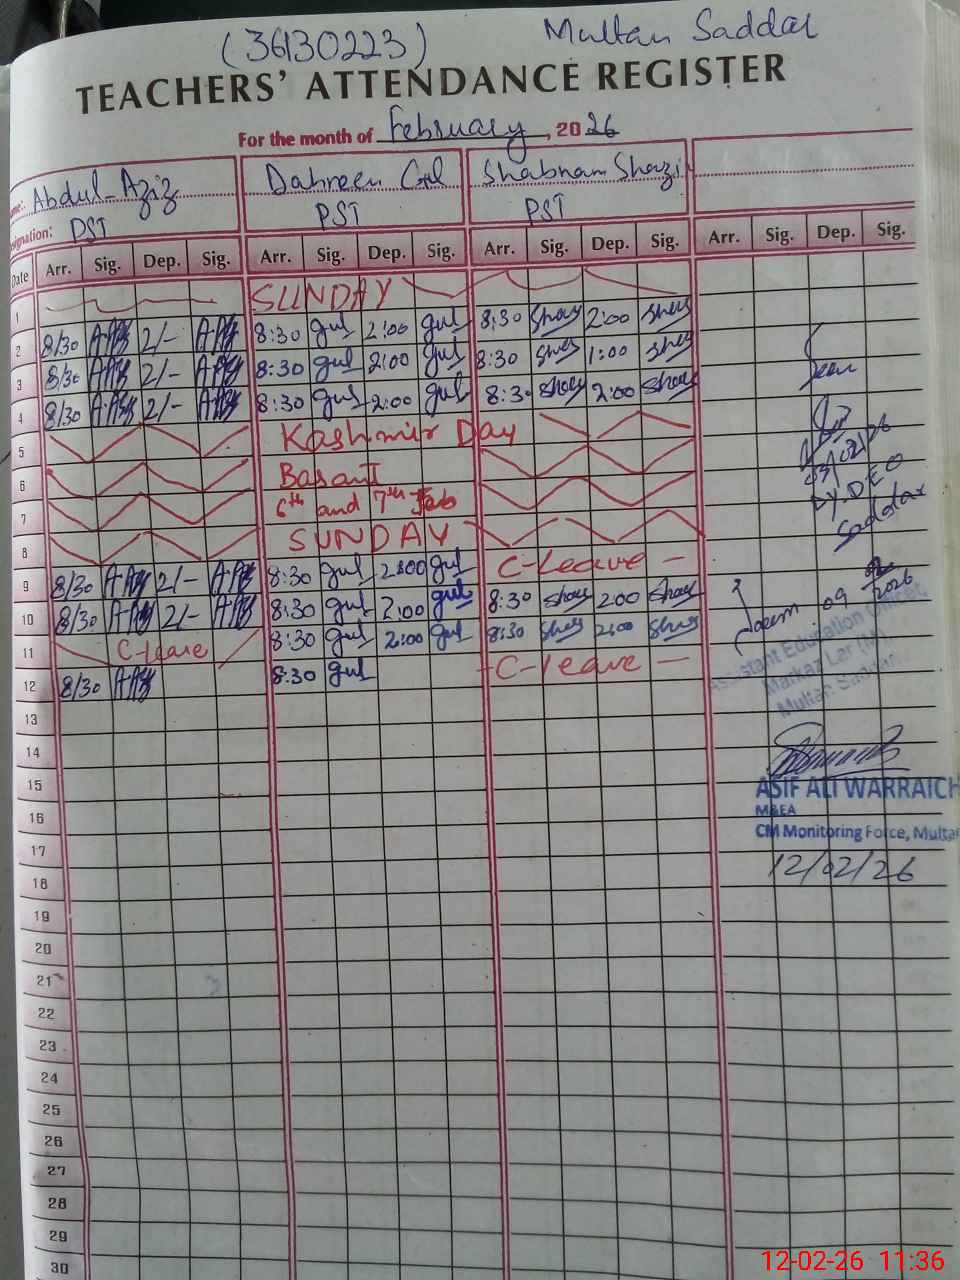 (36130223) Multan Saddar
TEACHERS' ATTENDANCE REGISTER
For the month of February, 2026
me: Abdul-Aziz Dahreen Gul Shabnam Shazi
signation: PST PST PST
Date Arr. Sig. Dep. Sig. Arr. Sig. Dep. Sig. Arr. Sig. Dep. Sig. Arr. Sig. Dep. Sig.
1 SUNDAY
2 8/30 2/- 8:30 gul 2:00 gul 8:30 Shaz 2:00 Shaz
3 8/30 2/- 8:30 gul 2:00 gul 8:30 Shaz 1:00 Shaz
4 8/30 2/- 8:30 gul 2:00 gul 8:30 Shaz 2:00 Shaz
5 Kashmir Day
6 Basant
7 6th and 7th Feb
8 SUNDAY
9 8/30 2/- 8:30 gul 2:00 gul C-Leave -
10 8/30 2/- 8:30 gul 2:00 gul 8:30 Shaz 2:00 Shaz
11 C-leave 8:30 gul 2:00 gul 8:30 Shaz 2:00 Shaz
12 8/30 8:30 gul - C-leave -
13
14
15
16
17
18
19
20
21
22
23
24
25
26
27
28
29
30
Seen
03/02/26
Dy. DEO
Saddar
Seen 09
2026
Assistant Education Officer
Markaz Lar (M)
Multan Saddar
ASIF ALI WARRAICH
M&EA
CM Monitoring Force, Multa
12/02/26
12-02-26 11:36